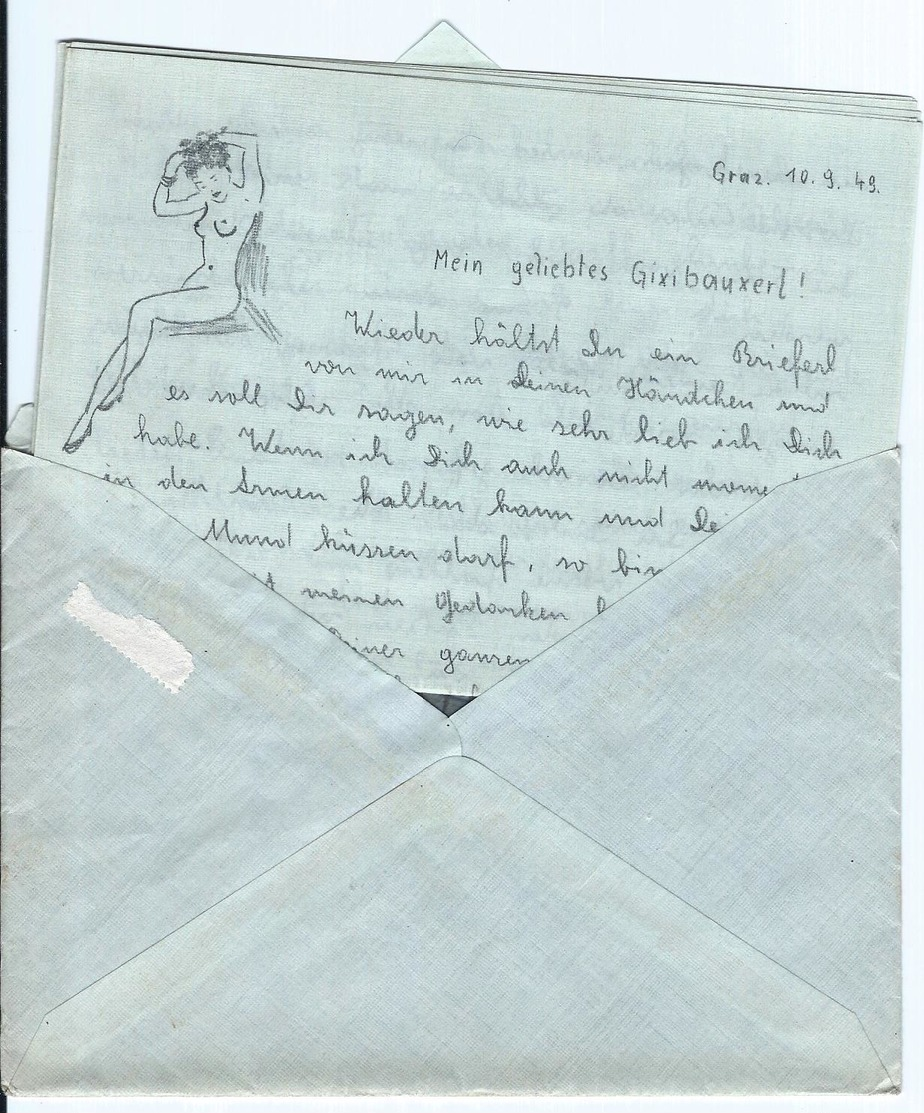 Graz. 10. 9. 49.
Mein geliebtes Gixibauxerl!
Wieder hältst Du ein Brieferl
von mir in Deinen Händchen und
es soll Dir sagen, wie sehr lieb ich Dich
habe. Wenn ich Dich auch nicht
in den Armen halten kann und
Mund küssen darf, so bin
meinen Gedanken
ganzen